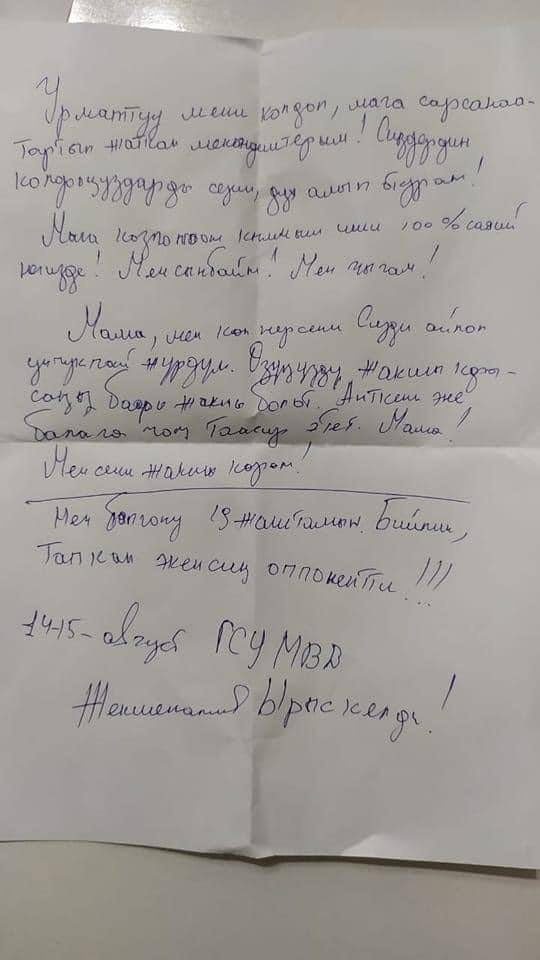 Урматтуу мени колдоп, мага сарсанаа-
тартып жаткан мекендештерим! Сиздердин
колдооңуздарды сезип, дух алып
Мага коюлган кылмыш иши 100% саясий
негизде! Мен сынбайм! Мен чыгам!
Мама, мен көп нерсени Сизди аяп
жүрдүм. Өзүңүздү жакшы кары-
саңыз баары жакшы болот. Анткени эне
балага чоң таасир этет. Мама!
Мен сени жакшы көрөм!
Мен болгону 19 жаштамын. Бийлик,
Тапкан экенсиң оппонентти!!!
14-15-август ГСУ МВД
Жекшеналиев Ырыскелди!